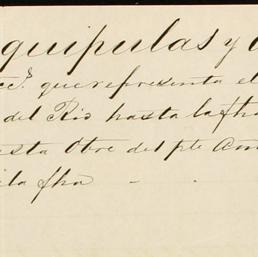 quipulas y
cc.s que representa el
del Rio hasta la fha
sta Obre del pte
la fha